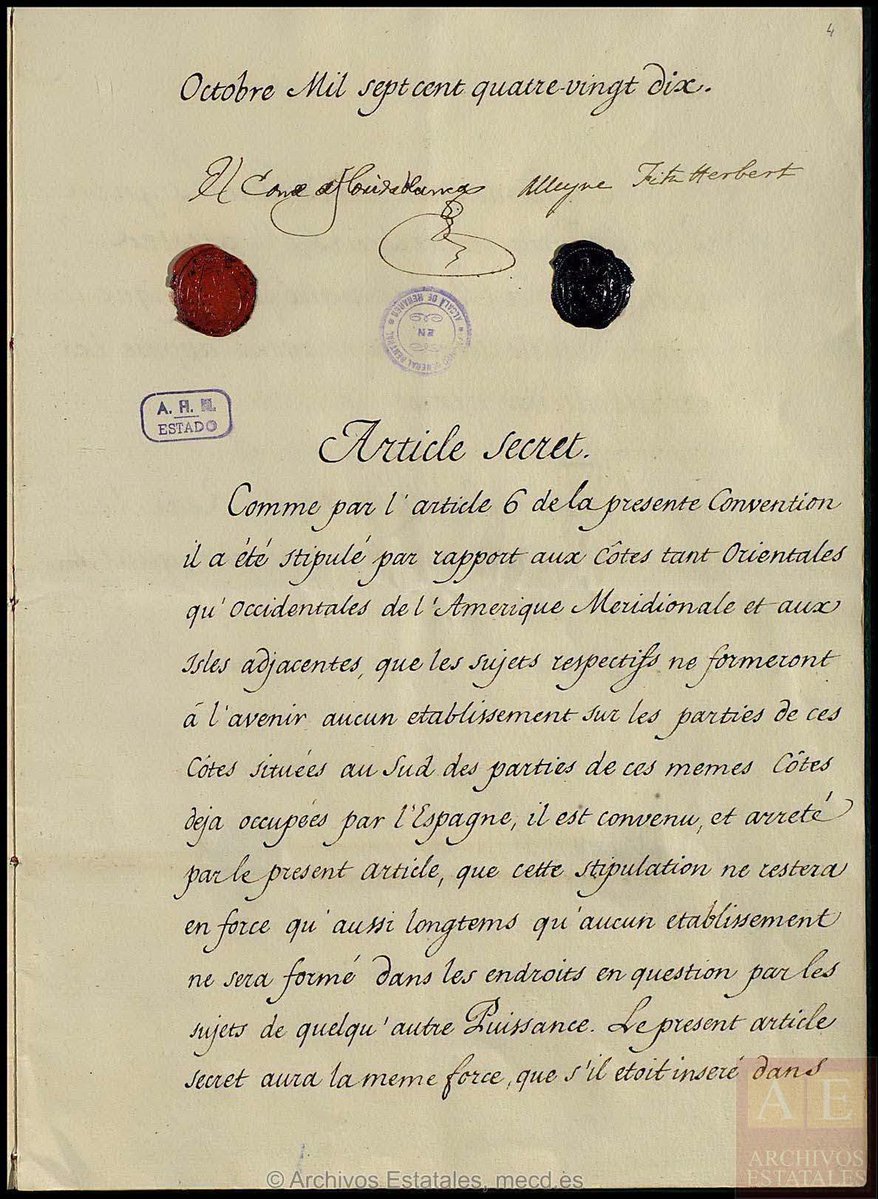 4
Octobre Mil sept cent quatre-vingt dix.
El Conde de Floridablanca Alleyne Fitz Herbert
ALCALÁ DE HENARES
EN
GENERAL CENTRAL
A. H. N.
ESTADO
Article secret.
Comme par l'article 6 de la presente Convention
il a été stipulé par rapport aux Côtes tant Orientales
qu'Occidentales de l'Amerique Meridionale et aux
Isles adjacentes, que les sujets respectifs ne formeront
à l'avenir aucun etablissement sur les parties de ces
Côtes situées au Sud des parties de ces memes Côtes
deja occupées par l'Espagne, il est convenu, et arreté
par le present article, que cette stipulation ne restera
en force qu'aussi longtems qu'aucun etablissement
ne sera formé dans les endroits en question par les
sujets de quelqu'autre Puissance. Le present article
secret aura la meme force, que s'il etoit inseré dans
AE
ARCHIVOS
ESTATALES
© Archivos Estatales, mecd.es